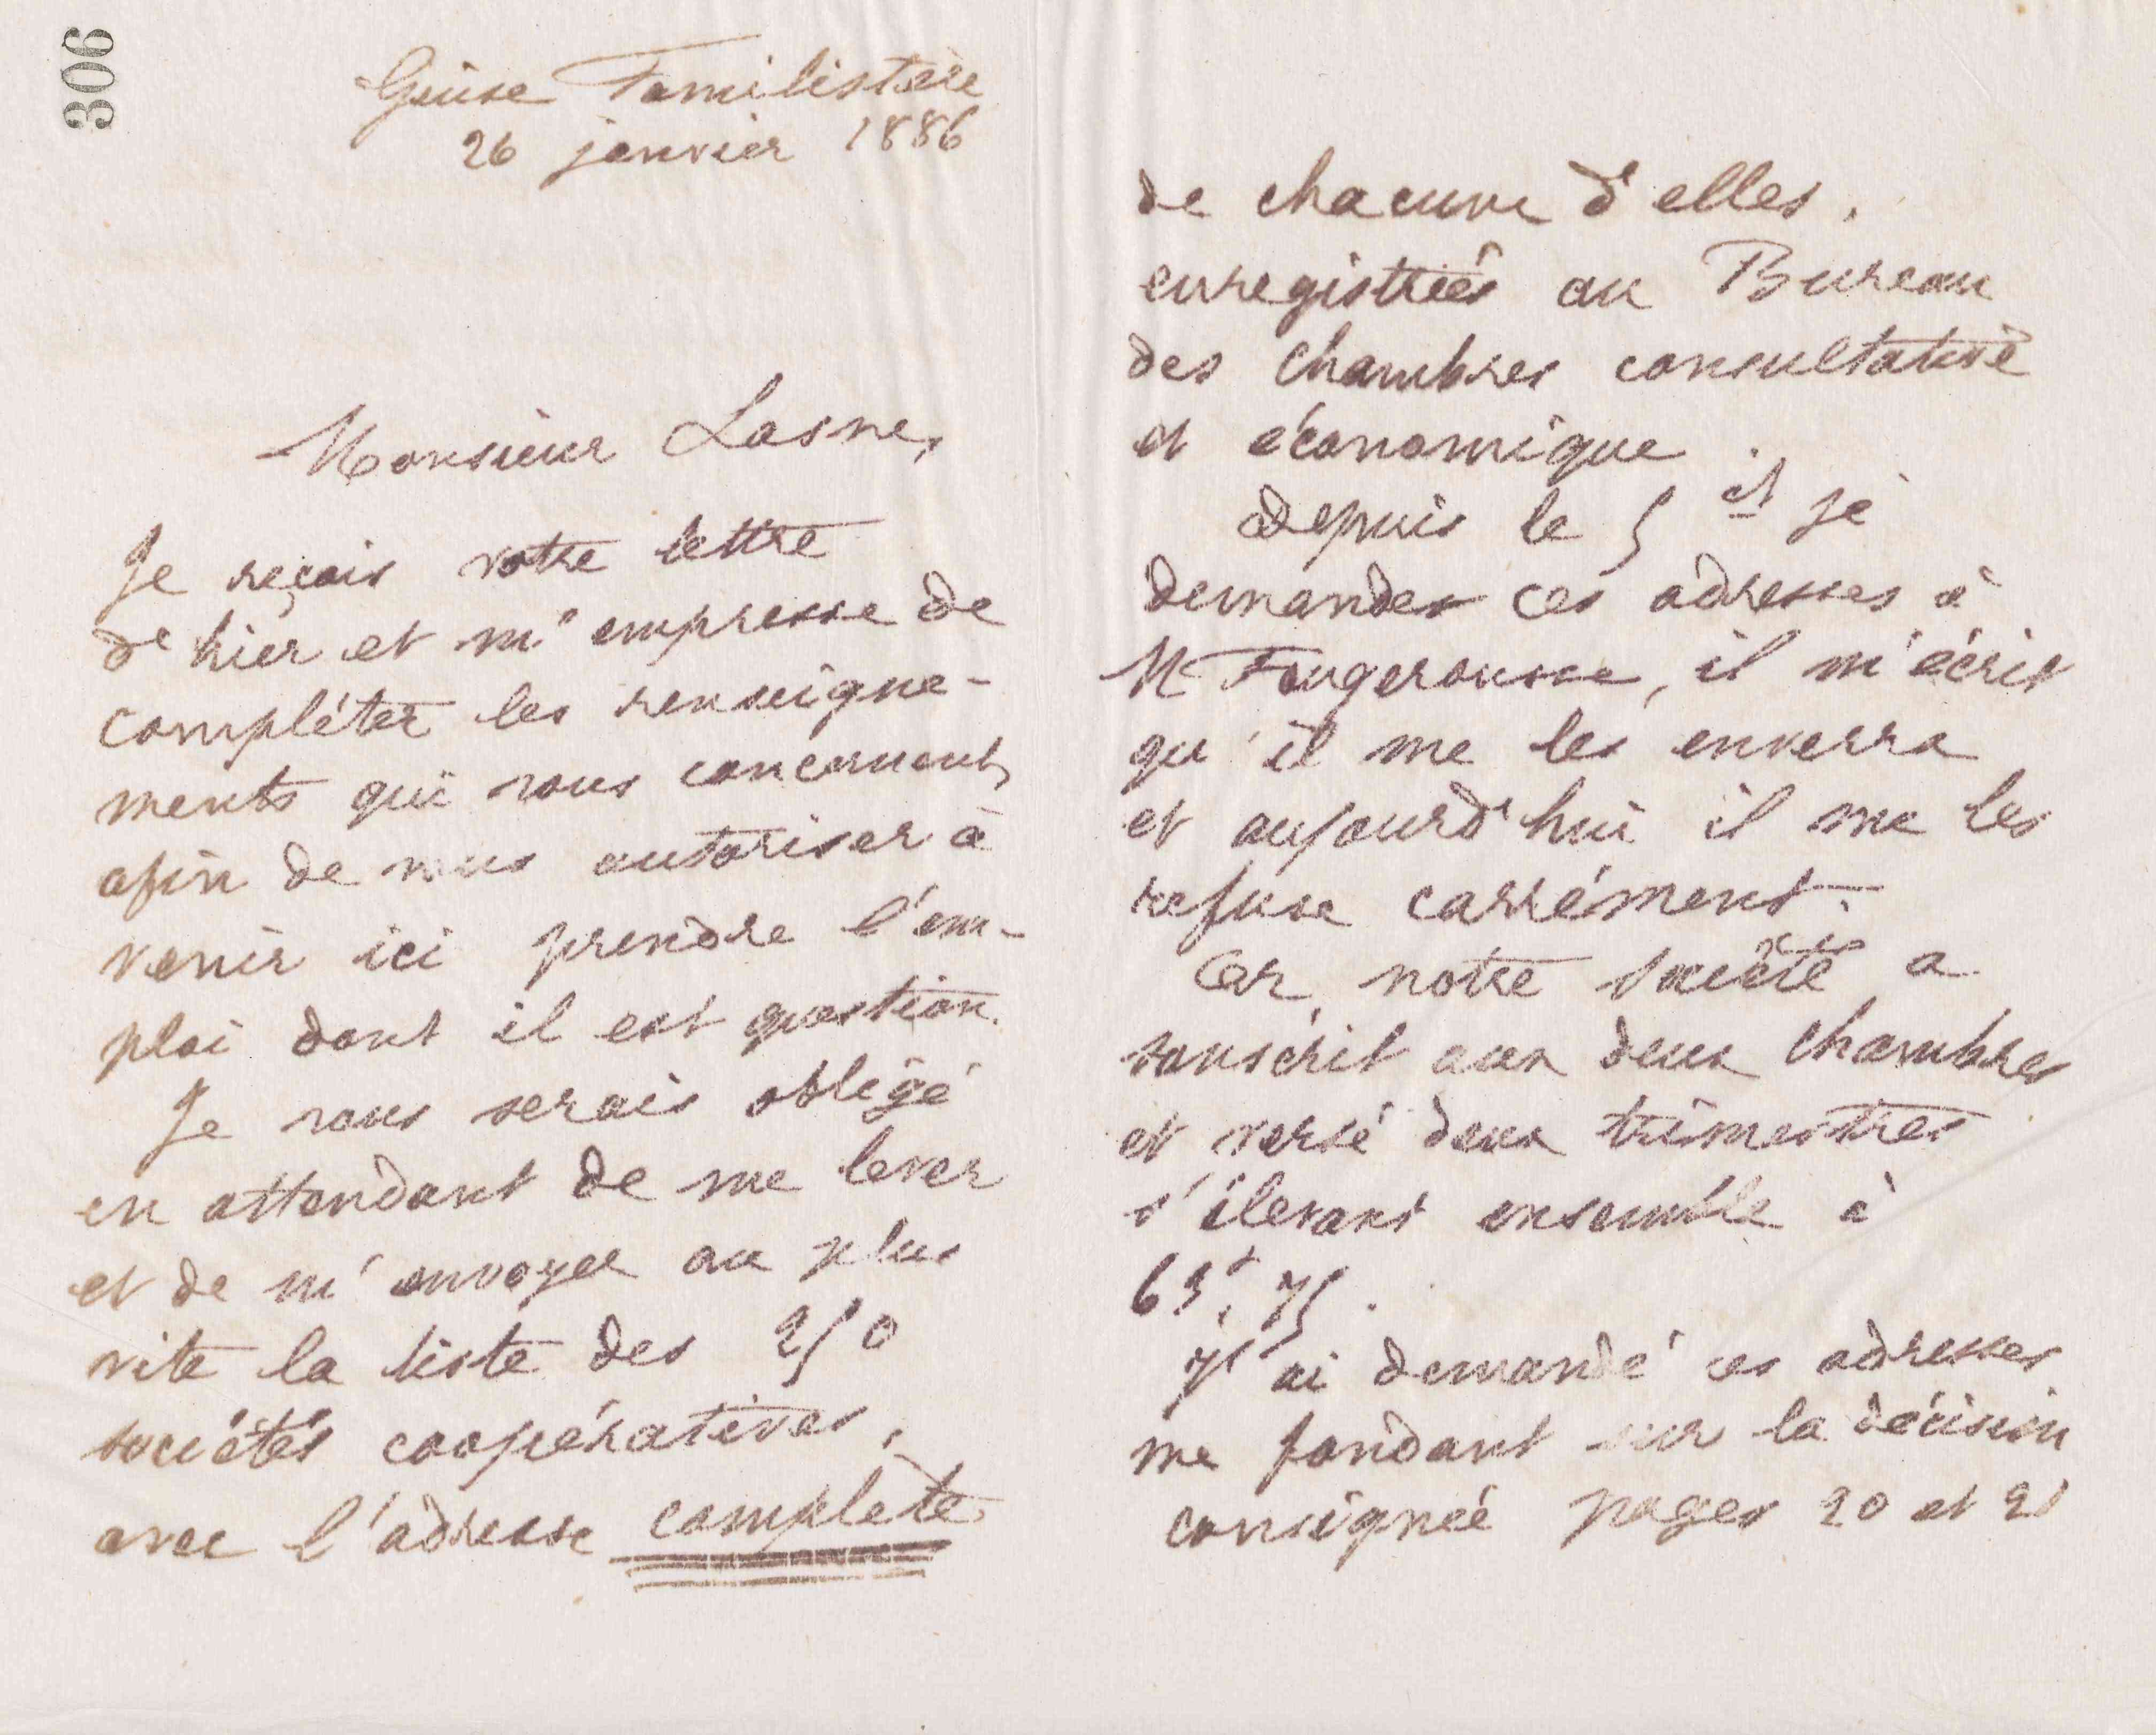 306
Guise Familistère
26 janvier 1886
Monsieur Lasne,
Je reçois votre lettre
de hier et m'empresse de
compléter les renseigne-
ments qui vous concernent,
afin de vous autoriser à
venir ici prendre l'em-
ploi dont il est question.
Je vous serais obligé
en attendant de me lever
et de m'envoyer au plus
vite la liste des 250
sociétés coopératives,
avec l'adresse complète
de chacune d'elles,
enregistrées au Bureau
des Chambres consultative
et économique.
Depuis le 5 ct je
demandes ces adresses à
M Fougerousse, il m'écrit
qu'il me les enverra
et aujourd'hui il me les
refuse carrément.
Or notre société a
souscrit aux deux Chambres
et versé deux trimestres
s'élevant ensemble à
63f,75.
J'ai demandé ces adresses
me fondant sur la décision
consignée pages 20 et 21